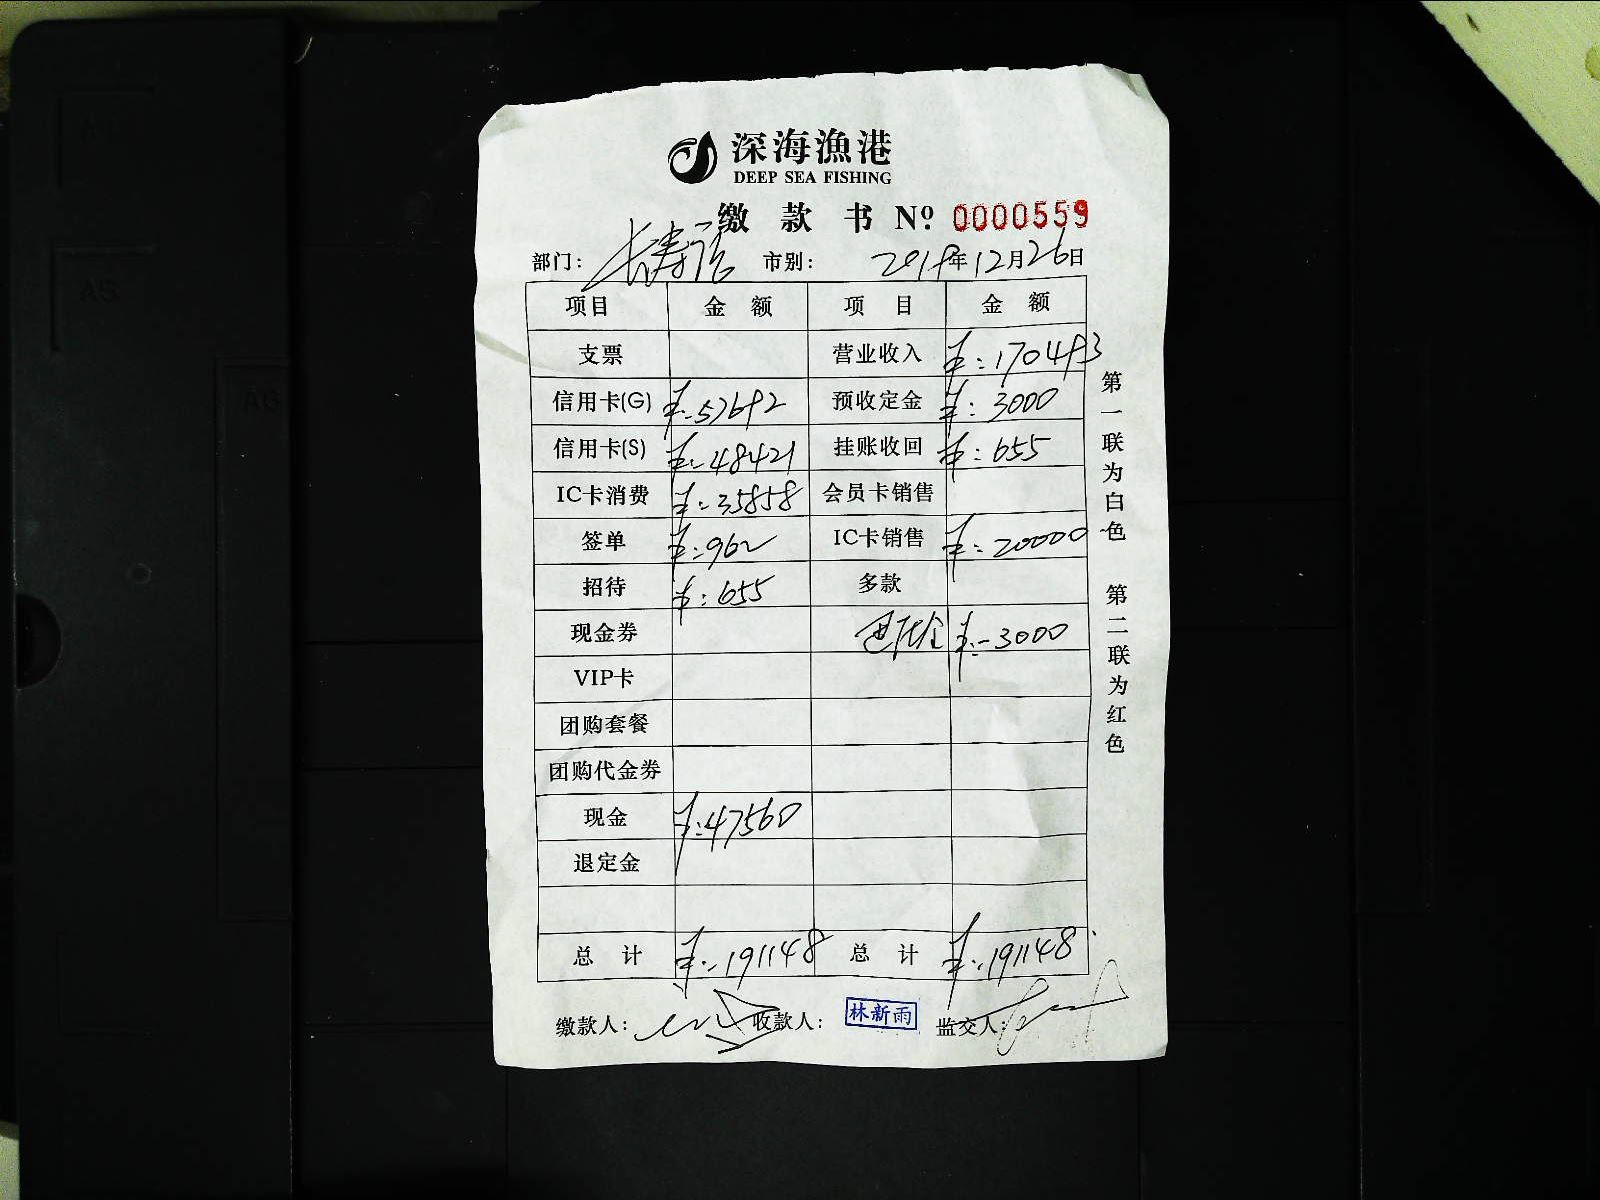 深海渔港
DEEP SEA FISHING
缴款书 Nº: 0000559
部门: 长寿店 市别: 2018年12月26日
项目 金额 项目 金额
支票 营业收入 ¥:170493
信用卡(G) ¥:57692 预收定金 ¥:3000
信用卡(S) ¥:48421 挂账收回 ¥:655
IC卡消费 ¥:35858 会员卡销售
签单 ¥:962 IC卡销售 ¥:20000
招待 ¥:655 多款
现金券 退定金 ¥:-3000
VIP卡
团购套餐
团购代金券
现金 ¥:47560
退定金
总计 ¥:191148 总计 ¥:191148
缴款人: 收款人: 林新雨 监交人:
第一联为白色 第二联为红色